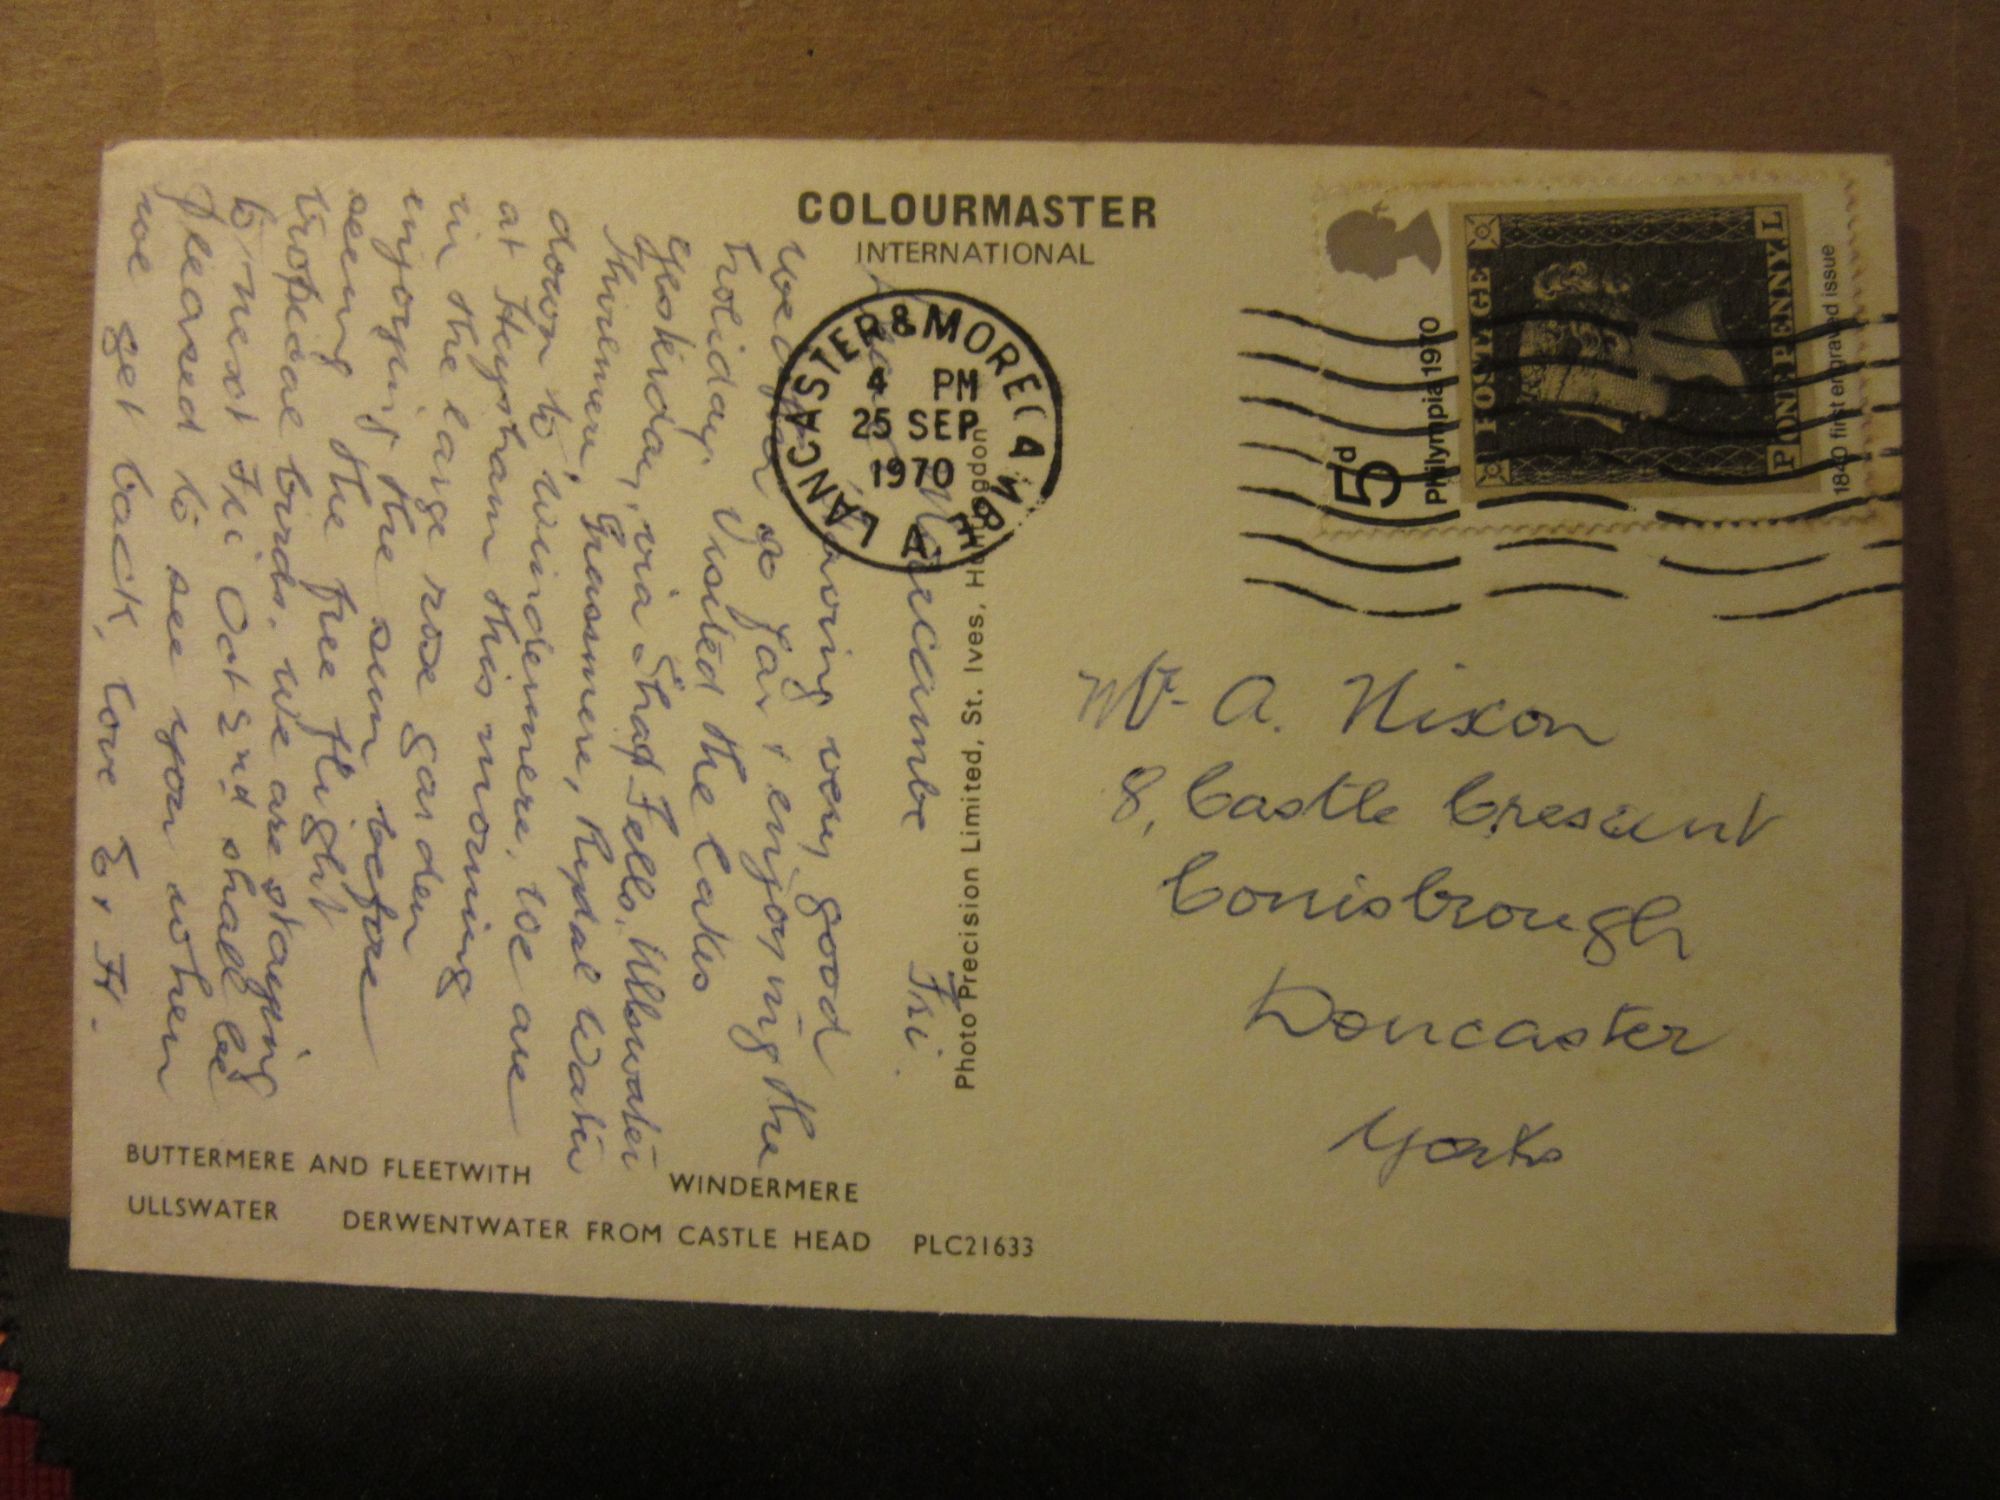 COLOURMASTER
INTERNATIONAL
Morecambe Fri.
having very good
weather so far & enjoying the
holiday. Visited the Lakes
yesterday, via Shap Fells, Ullswater
Thirlmere, Grasmere, Rydal Water
down to Windermere. We are
at Heysham this morning
in the large rose garden
enjoying the sun before
seeing the free flight
tropical birds. We are staying
to next Fri Oct 2nd shall be
pleased to see you when
we get back, love E & H.
LANCASTER & MORECAMBE A
4 PM
25 SEP
1970
Photo Precision Limited, St. Ives, Huntingdon
5d
Philympia 1970
POSTAGE
ONE PENNY.
P L
1840 first engraved issue
Mr A. Nixon
8, Castle Crescent
Conisbrough
Doncaster
Yorks
BUTTERMERE AND FLEETWITH WINDERMERE
ULLSWATER DERWENTWATER FROM CASTLE HEAD PLC21633